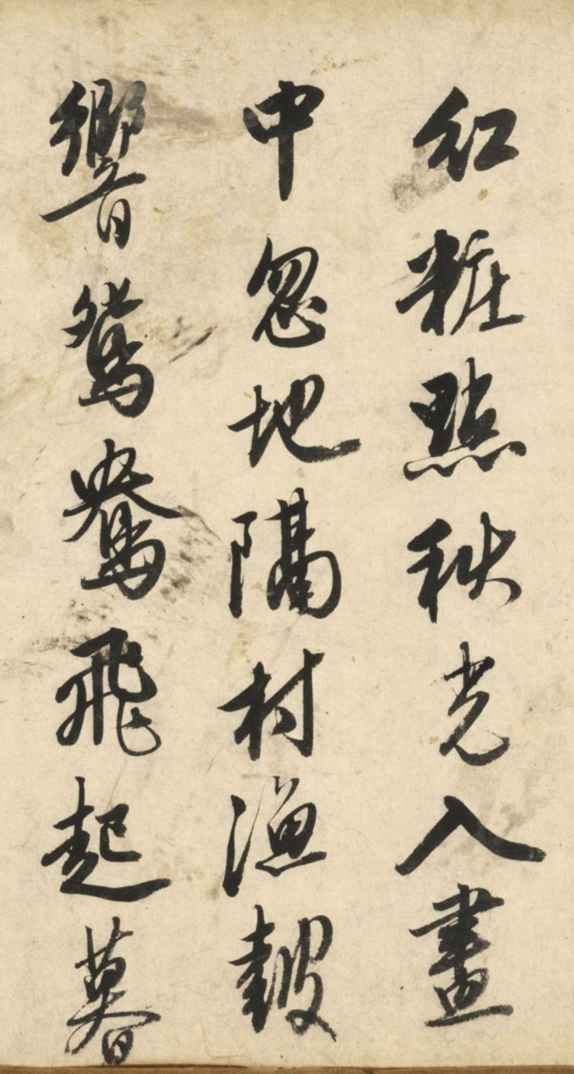 紅粧點秋光入畫
中忽地隔村漁鼓
響鴛鴦飛起暮